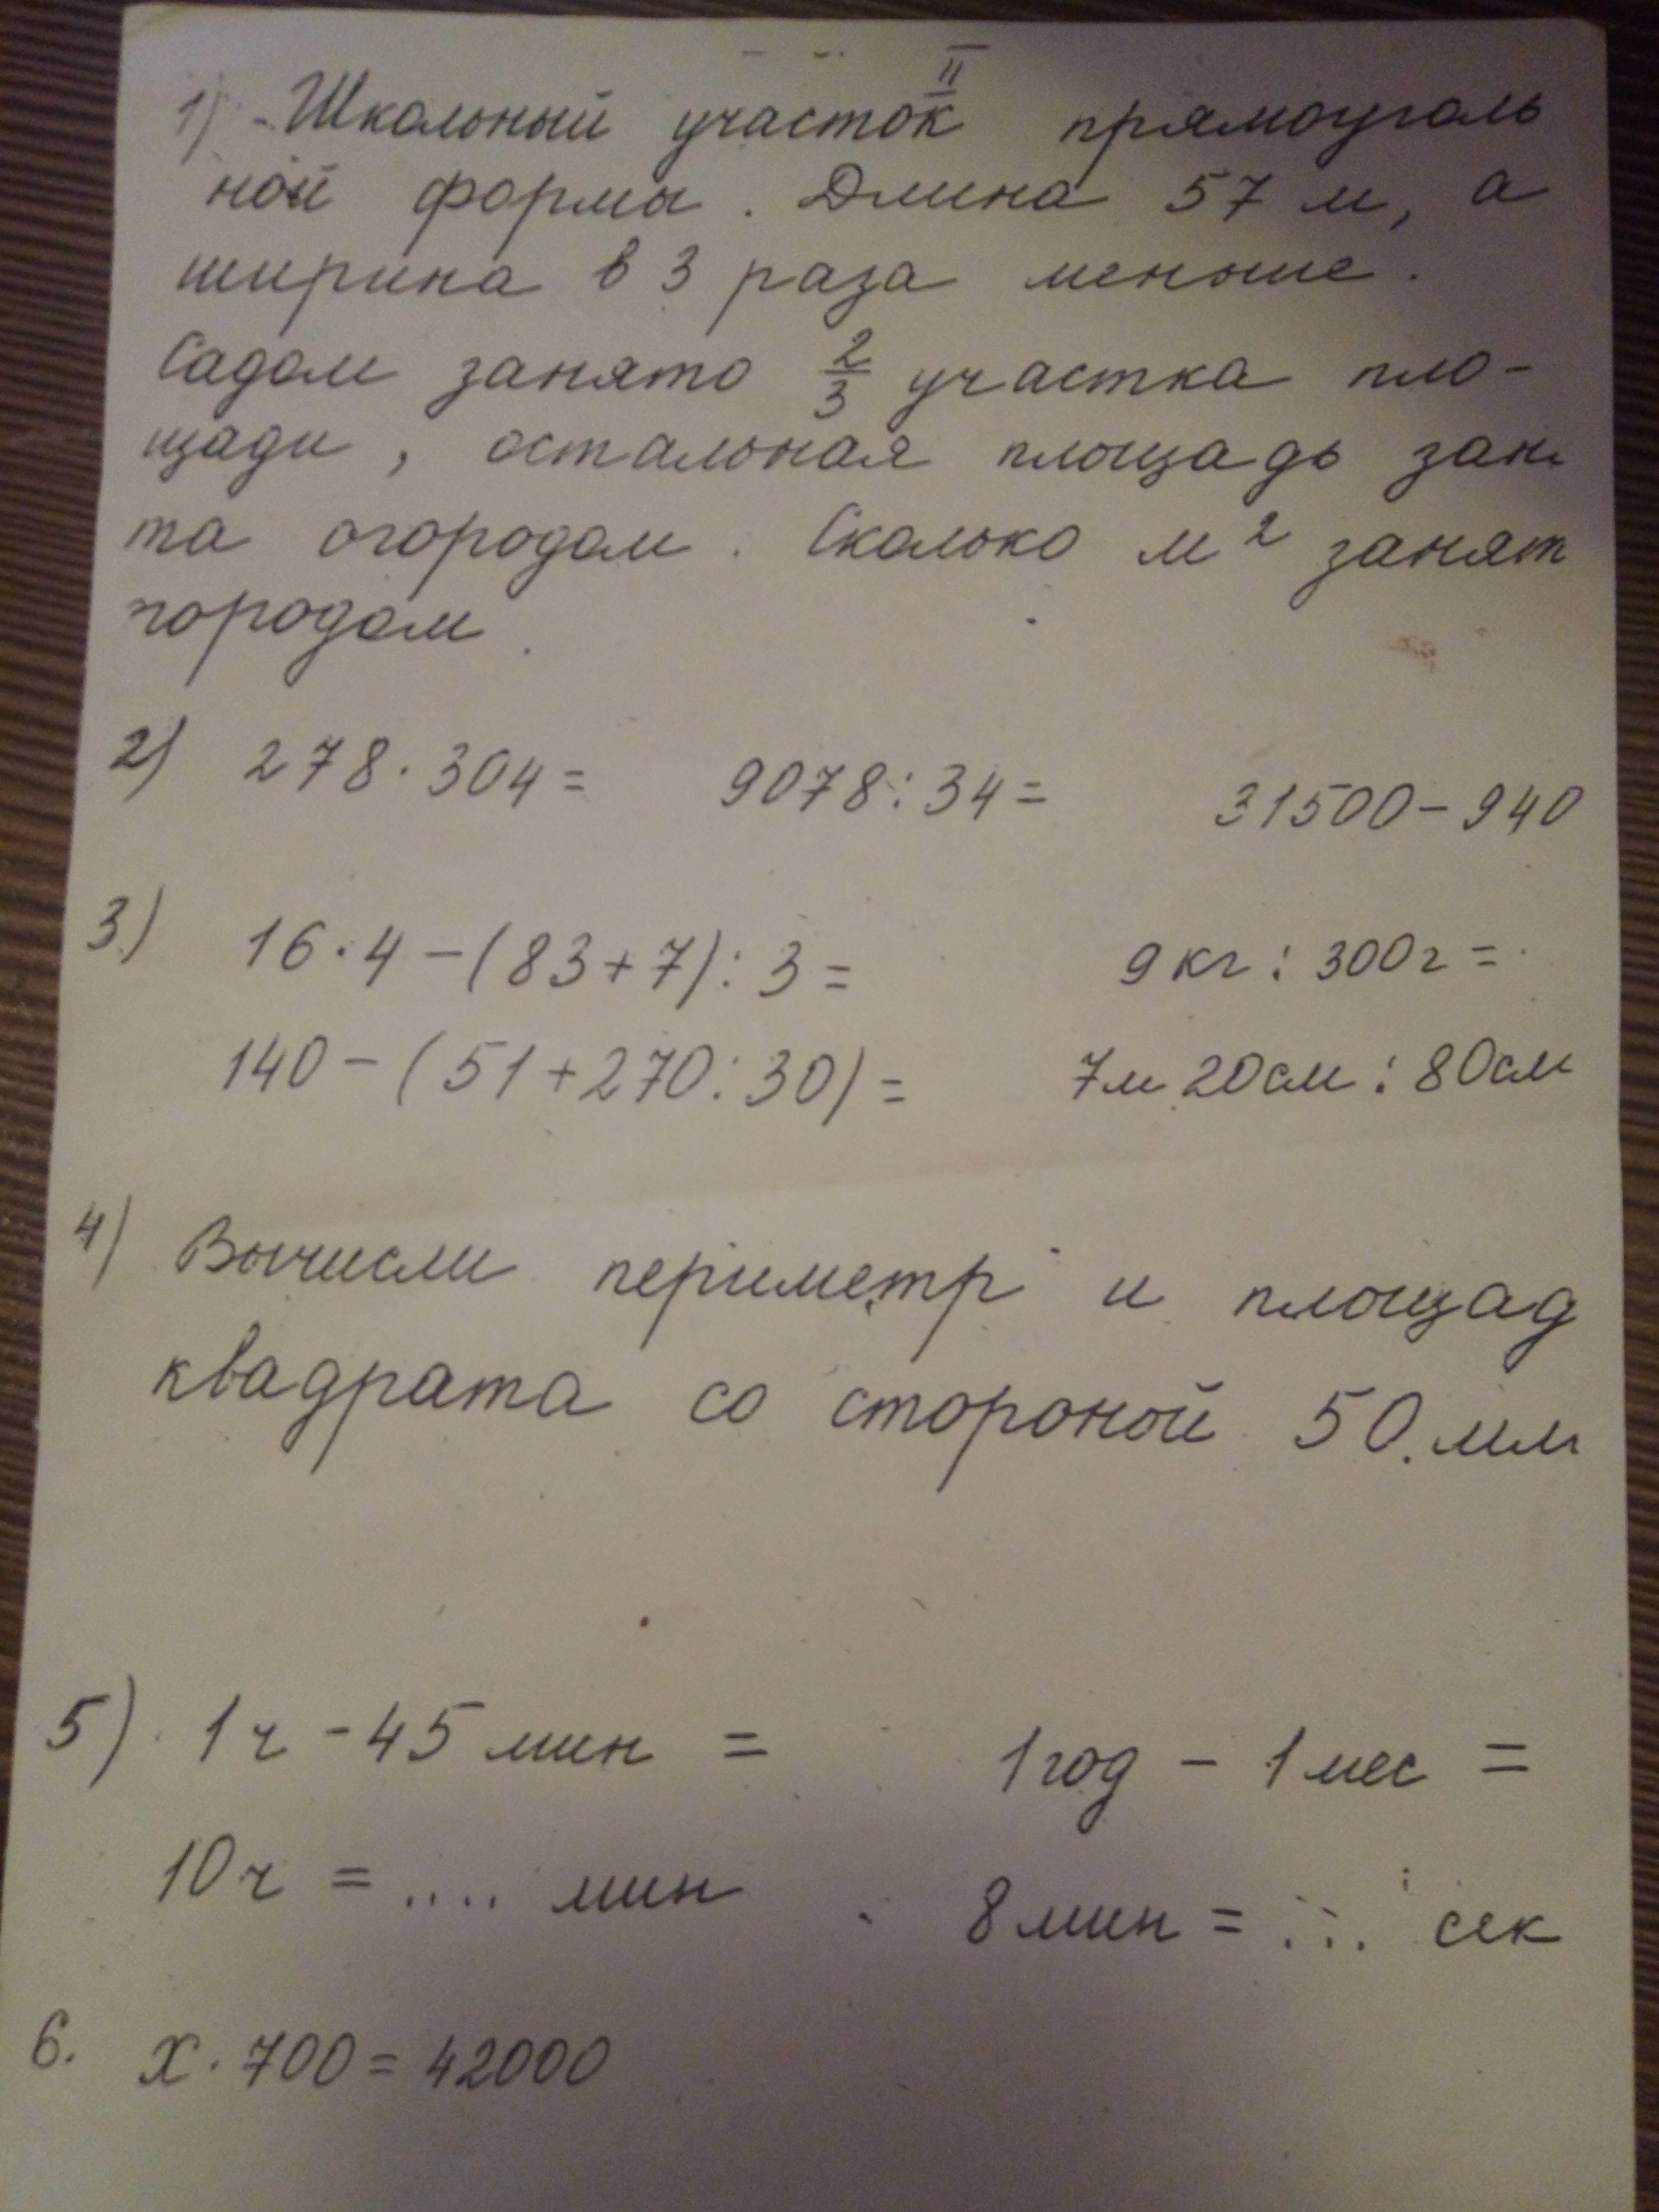 II
1) Школьный участок прямоуголь
ной формы. Длина 57 м, а
ширина в 3 раза меньше.
Садом занято 2/3 участка пло-
щади, остальная площадь заня
та огородом. Сколько м² занят
городом.
2) 278·304= 9078:34= 31500-940
3) 16·4-(83+7):3= 9кг:300г=
140-(51+270:30)= 7м 20см:80см
4) Вычисли периметр и площад
квадрата со стороной 50 мм
5) 1ч - 45 мин = 1год - 1мес =
10ч = .... мин 8мин = ... сек
6. x·700=42000